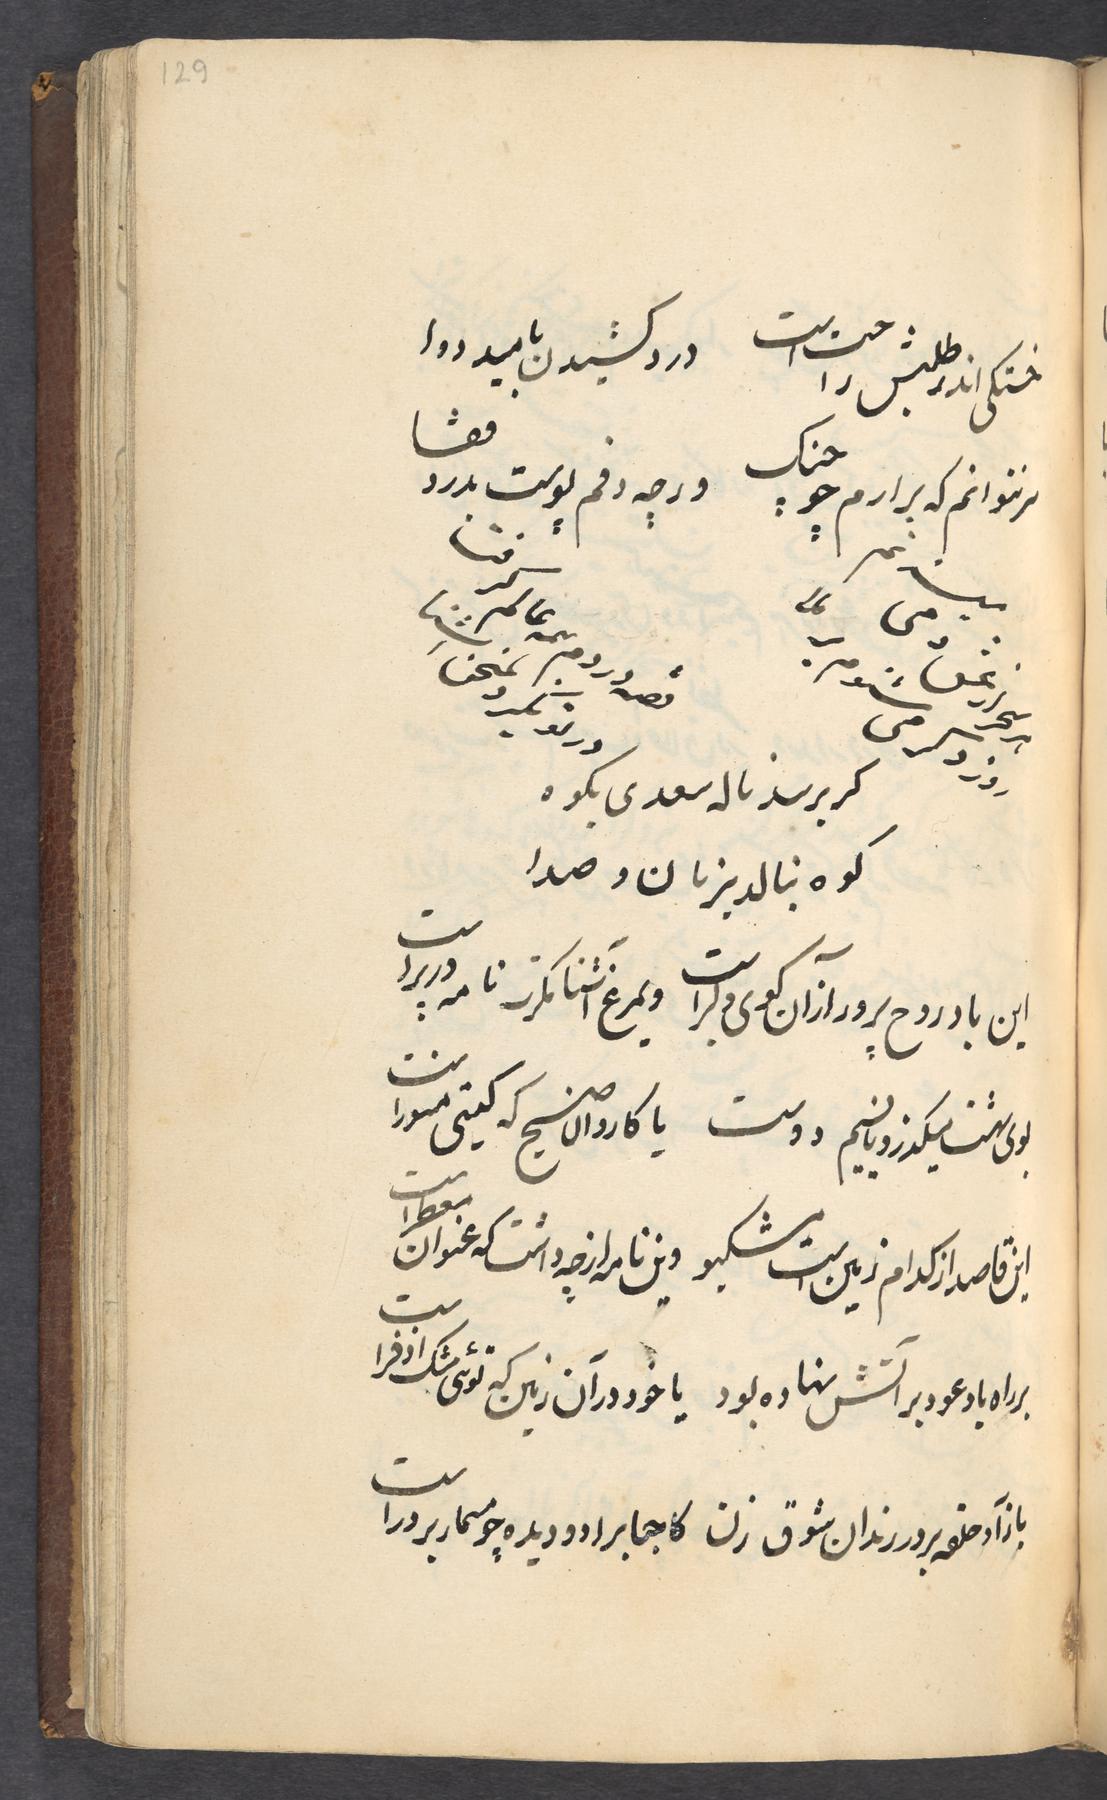 129
خستکی اندر طلبش راحت است درد کشیدن بامید دوا
سر نتوانم که برارم چو چنک ور چه دفم پوست بدرد قفا
هر سحر از عشق دمی میزنم
روز دکر می شنوم بر ملا
قصه دردم همه عالم گرفت
در تو نمیگیرد
گر برسد ناله سعدی بکوه
کوه بنالد بزبان و صدا
این باد روح پرور از آن کوی دلبر است وین مرغ آشنا مکرت نامه در پر است
بوی بهشت میکذرد یا نسیم دوست یا کاروان صبح که کیتی منور است
این قاصد از کدام زمین است مشکبو وین نامه از چه داشت که عنوان معطر است
بر راه باد عود بر آتش نهاده بود یا خود در آن زمین که توئی مشک اذفر است
باز آ و حلقه بر در رندان شوق زن کاحباب را دو دیده چو مسمار بر در است